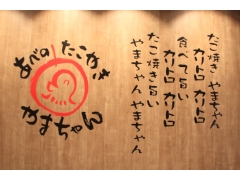 あべの たこやき
やまちゃん
たこ焼き やまちゃん
カリトロ カリトロ
食べて旨い
カリトロ カリトロ
たこ焼き旨い
やまちゃん やまちゃん